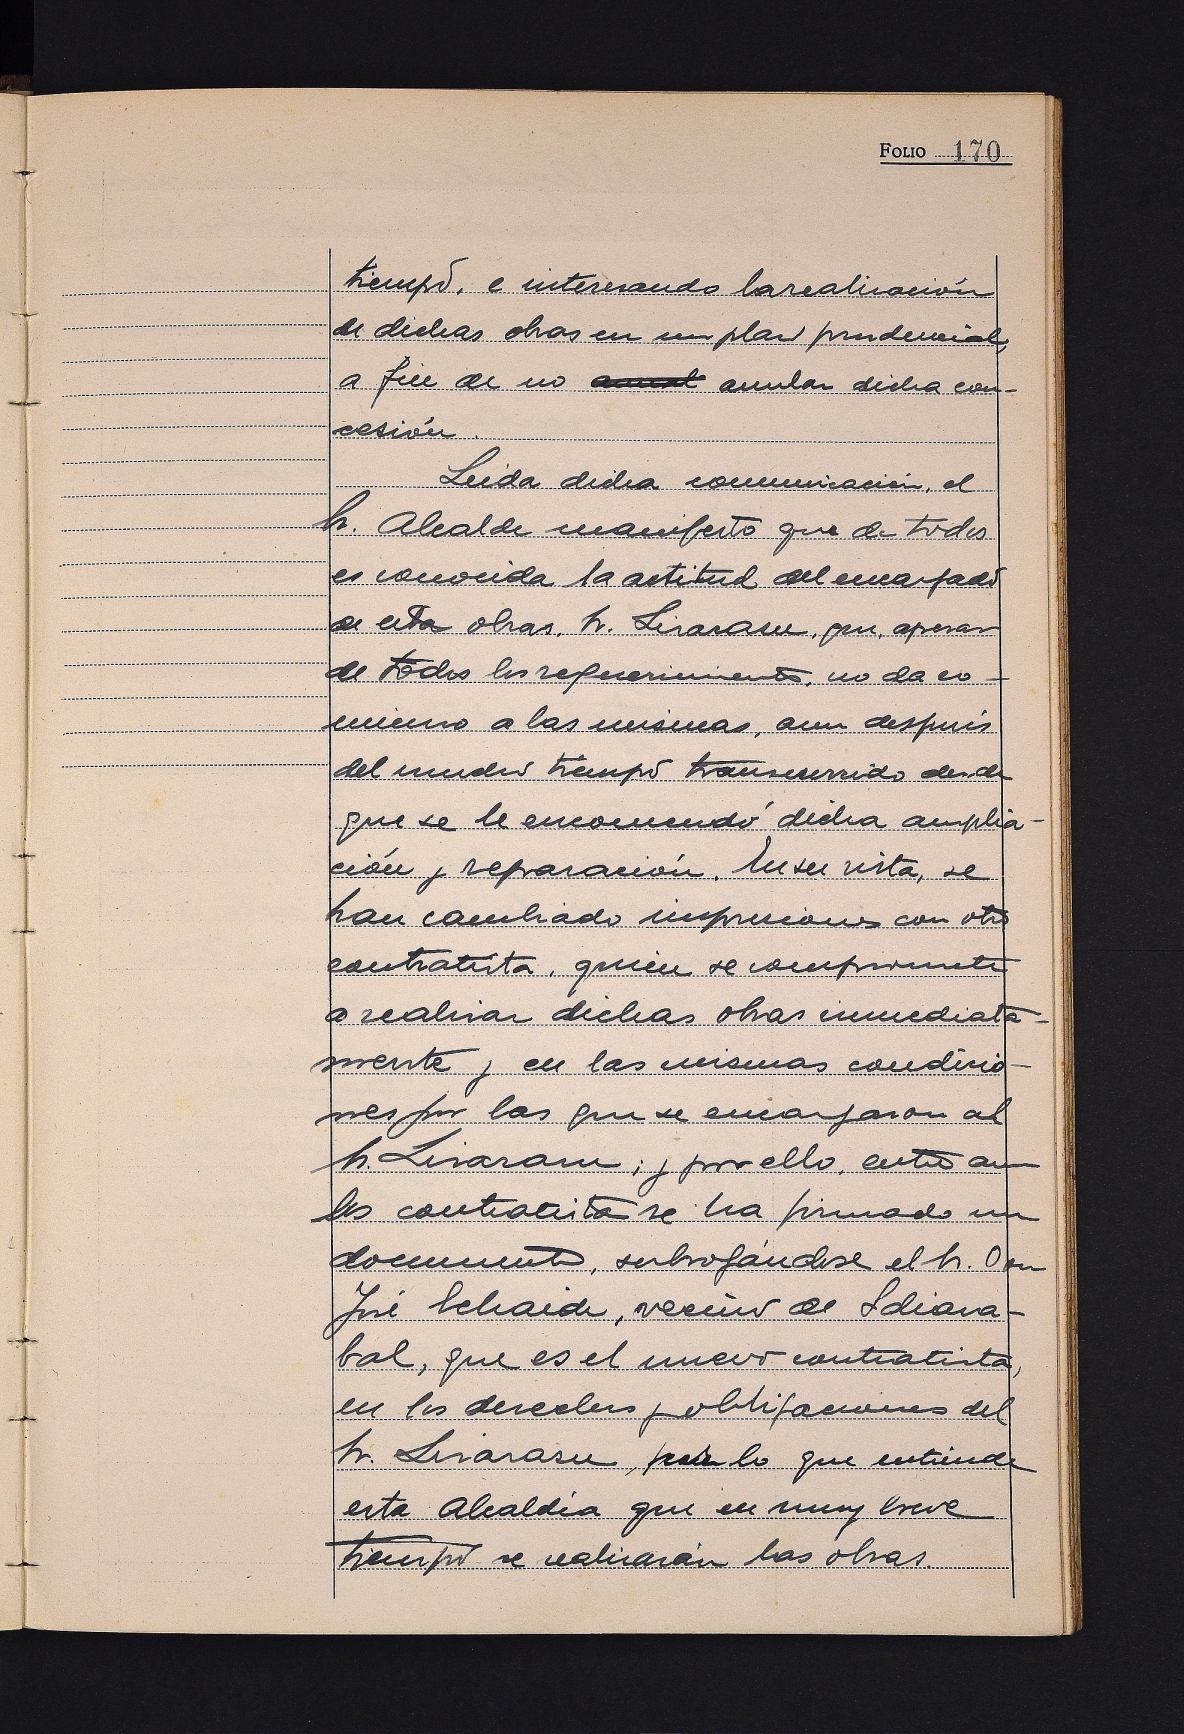 FOLIO 170
tiempo, e interesando la realización
de dichas obras en un plazo prudencial,
a fin de no anular dicha con-
cesión.
Leida dicha comunicación, el
Sr. Alcalde manifestó que de todos
es conocida la actitud del encargado
de esta obras, Sr. Lizarazu, que, apesar
de todos los requerimientos, no da co-
mienzo a las mismas, aun después
del mucho tiempo transcurrido desde
que se le encomendó dicha amplia-
ción y reparación. En su vista, se
han cambiado impresiones con otro
contratista, quien se compromete
a realizar dichas obras inmediata-
mente y en las mismas condicio-
nes por las que se encargaron al
Sr. Lizarazu; y por ello, entre am
bos contratistas se ha firmado un
documento, subrogándose el Sr. Don
José Echaide, vecino de Idiaza-
bal, que es el nuevo contratista,
en los derechos y obligaciones del
Sr. Lizarazu, por lo que entiende
esta Alcaldía que en muy breve
tiempo se realizarán las obras.